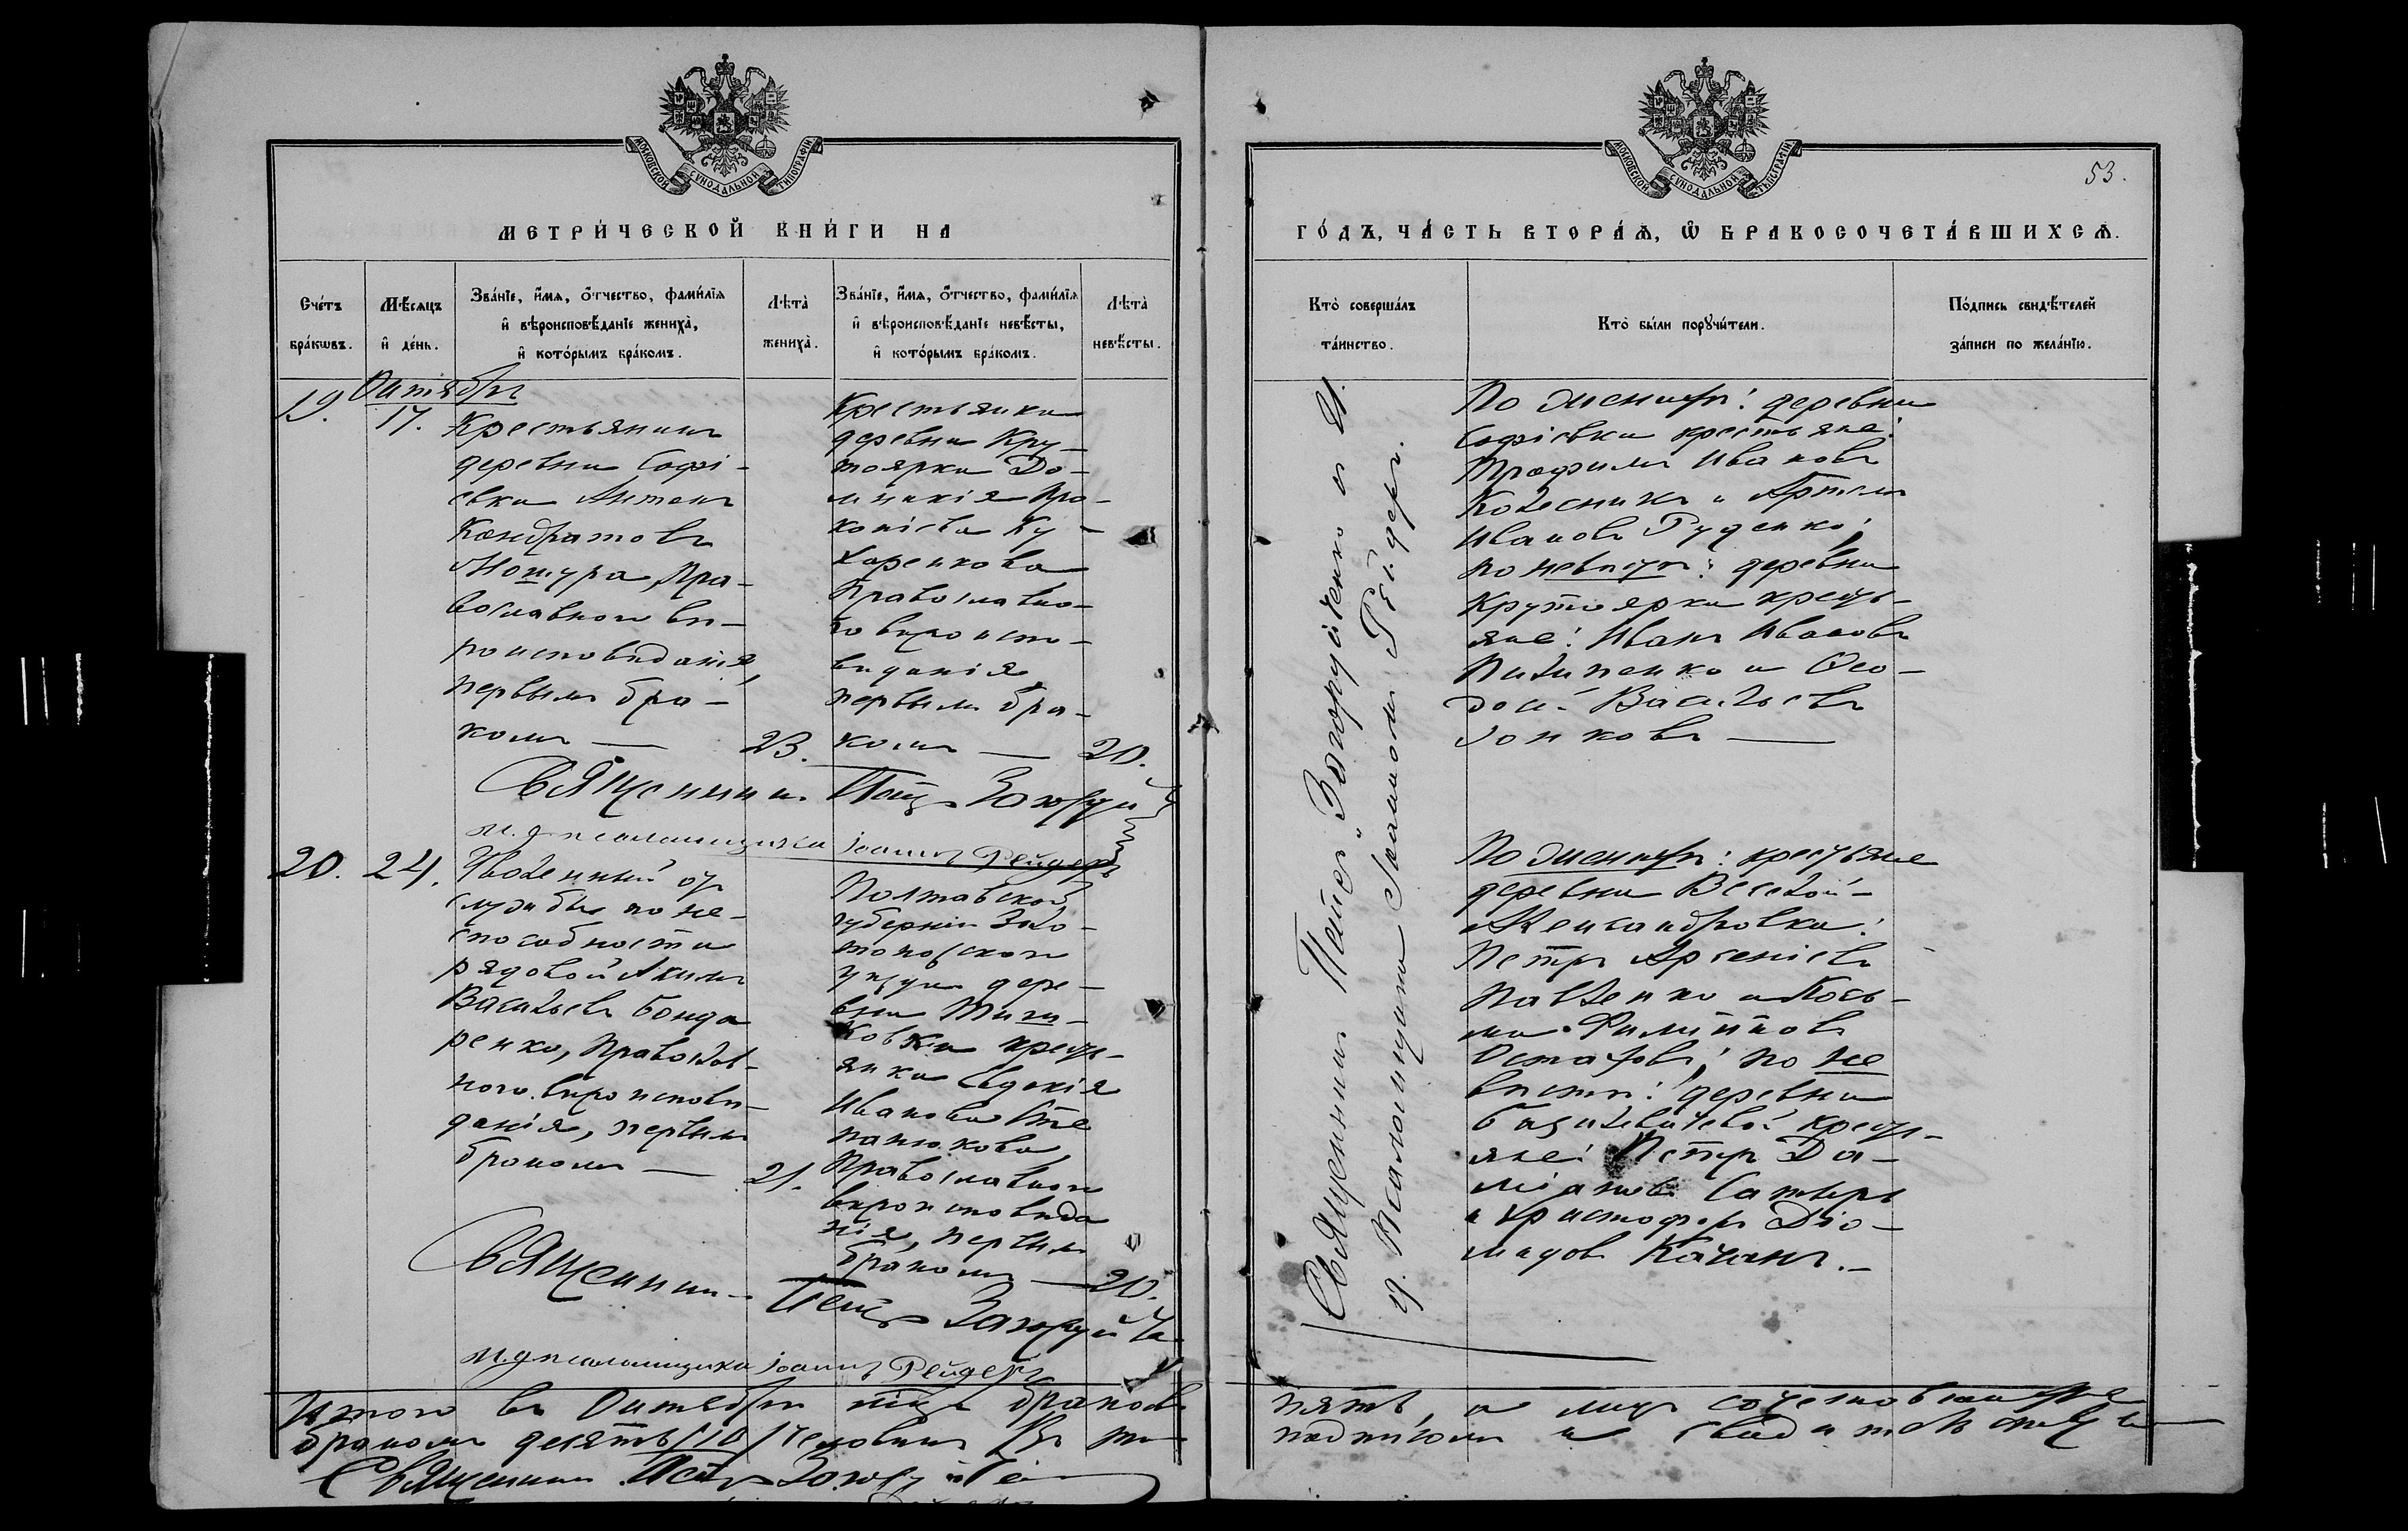 МОСКОВСКОЙ СѴНОДАЛЬНОЙ ТИПОГРАФІИ
МЕТРИ́ЧЕСКОЙ КНИ́ГИ НА
Счётъ бра́кωвъ.
Мѣ́сяцъ и҆ де́нь.
Зва́нїе, и҆́мѧ, ѻ҆́тчество, фами́лїѧ
и҆ вѣроисповѣ́данїе жениха̀,
и҆ кото́рымъ бра́комъ.
Лѣта̀ жениха̀.
Зва́нїе, и҆́мѧ, ѻ҆́тчество, фами́лїѧ
и҆ вѣроисповѣ́данїе невѣ́сты,
и҆ кото́рымъ бра́комъ.
Лѣта̀ невѣ́сты.
Октябрь
19.
17.
Крестьянинъ
деревни Софі-
евки Антонъ
Кондратовъ
Мотура, Пра-
вославнаго вѣ-
роисповѣданія,
первымъ бра-
комъ —
23.
Крестьянка
деревни Кру-
тоярки До-
мникія Про-
копіева Ку-
харенкова
Православна-
го вѣроиспо-
вѣданія
первымъ бра-
комъ —
20.
Священникъ Петръ Загоруйч
И. д. псаломщика Іоаннъ Рейдеръ
20.
24.
Уволенный отъ
службы по не-
способности
рядовой Акимъ
Васильевъ Бонда
ренко, Православ-
наго вѣроисповѣ-
данія, первымъ
бракомъ —
21.
Полтавской
губерніи Золо-
тоношскаго
уѣзда дере-
вни
крест-
янка Евдокія
Иванова Сте
панюкова,
Православнаго
вѣроисповѣда
нія, первымъ
бракомъ —
20.
Священникъ Петръ Загоруйч
И. д. псаломщика Іоаннъ Рейдеръ
Итого въ Октябрѣ м-цѣ браковъ
бракомъ десять /10/ человѣкъ
Священникъ Петръ Загоруйч
МОСКОВСКОЙ СѴНОДАЛЬНОЙ ТИПОГРАФІИ
53.
ГО́ДЪ, ЧА́СТЬ ВТОРА́Ѧ, Ѽ БРАКОСОЧЕТА́ВШИХСѦ.
Кто̀ соверша́лъ
та́инство.
Кто̀ бы́ли порꙋчи́тели.
По́дпись свидѣ́телей
за́писи по жела́нїю.
Священникъ Петръ Загоруйченко и И.
д. Псаломщика Іоаннъ Рейдеръ.
По женихѣ: деревни
Софіевки крестьяне:
Трофимъ Ивановъ
Колесникъ и Артемъ
Ивановъ Руденко;
по невѣстѣ: деревни
Крутоярки кресть-
яне: Иванъ Ивановъ
Пилипенко и Ѳео-
досій Васильевъ
—
По женихѣ: крестьяне
деревни Веселой-
Александровки:
Петръ Арсеніевъ
Павленко и Кось-
ма
Остаповъ; по не
вѣстѣ: деревни
крест-
яне: Петръ Да-
міановъ
и Христофоръ Діо-
мидовъ Качанъ. —
пять, а лицъ сочетовавшихся
подписомъ и свидѣтельствуемъ —